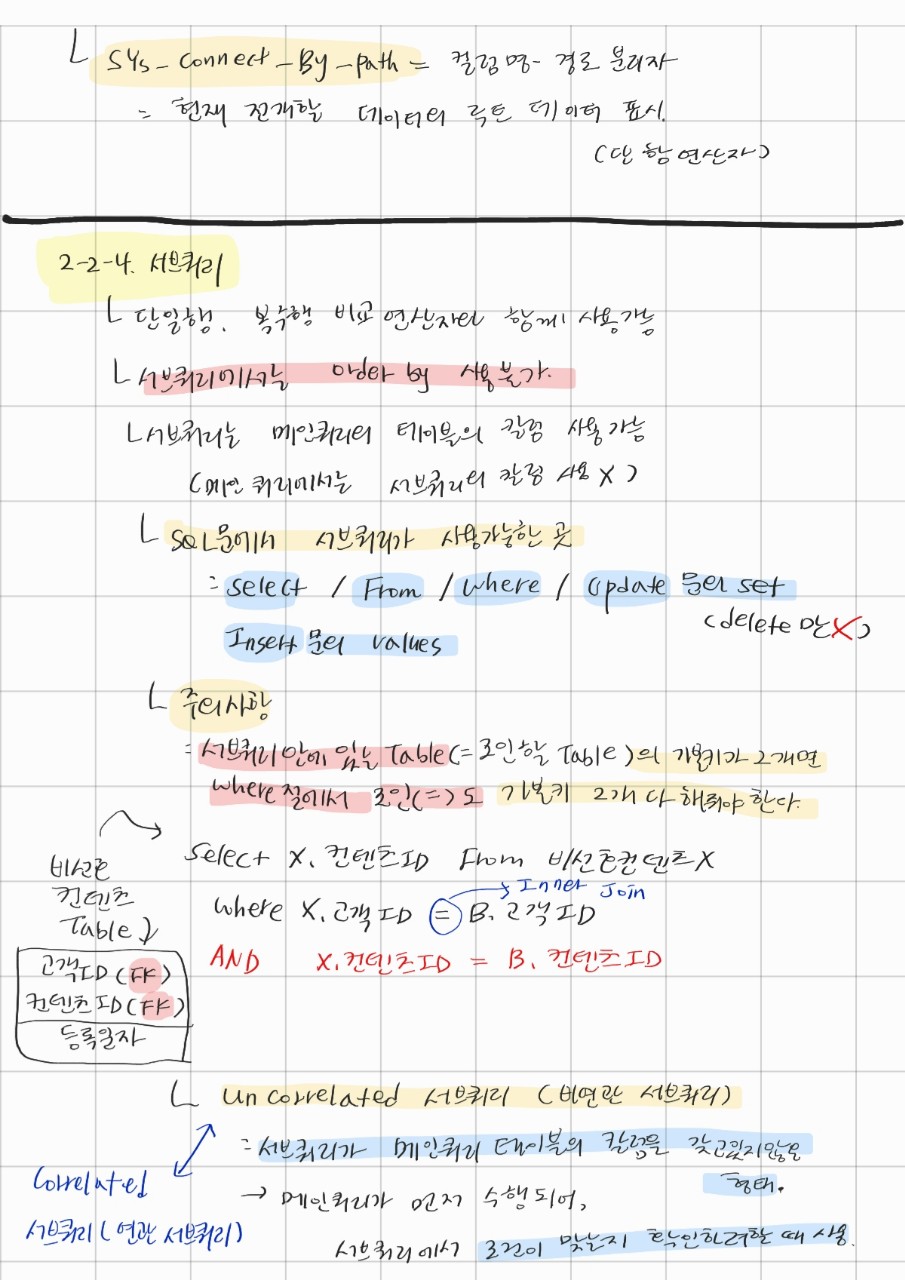 ㄴ Sys-Connect-By-path = 컬럼명 - 경로 분리자
= 현재 전개할 데이터의 루트 데이터 표시.
(단항 연산자)
2-2-4. 서브쿼리
ㄴ 단일행, 복수행 비교 연산자와 함께 사용가능
ㄴ 서브쿼리에서는 order by 사용불가.
ㄴ 서브쿼리는 메인쿼리의 테이블의 칼럼 사용가능
(메인 쿼리에서는 서브쿼리의 칼럼 사용 X)
ㄴ SQL문에서 서브쿼리가 사용가능한 곳
= Select / From / Where / Update 문의 set
(delete 만 X)
Insert 문의 values
ㄴ 주의사항
= 서브쿼리안에 있는 Table(=조인할 Table)의 기본키가 2개면
where절에서 조인(=)도 기본키 2개 다 해줘야 한다.
비선호
컨텐츠
Table
고객ID (FK)
컨텐츠ID (FK)
등록일자
Select X.컨텐츠ID From 비선호컨텐츠 X
where X.고객ID = B.고객ID
→ Inner Join
AND X.컨텐츠ID = B.컨텐츠ID
ㄴ Uncorrelated 서브쿼리 (비연관 서브쿼리)
= 서브쿼리가 메인쿼리 테이블의 칼럼을 갖고있지않은
형태.
Correlated
서브쿼리 (연관 서브쿼리)
→ 메인쿼리가 먼저 수행되어,
서브쿼리에서 조건이 맞는지 확인하려할 때 사용.